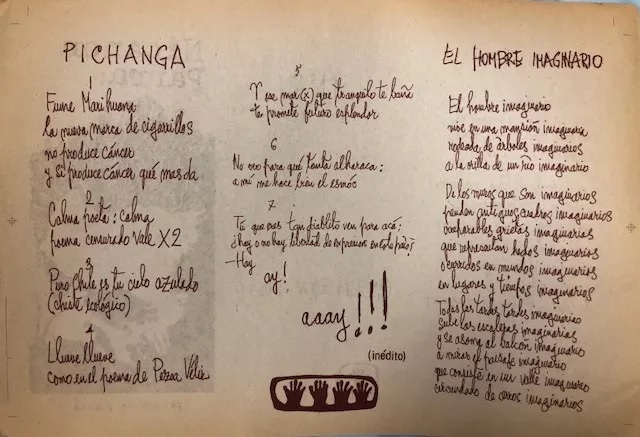 PICHANGA
1
Fume Marihuana
la nueva marca de cigarrillos
no produce cáncer
y si produce cáncer qué mas da
2
Calma poeta: calma
poema censurado Vale X2
3
Puro Chile es tu cielo azulado
(chiste ecológico)
4
Llueve llueve
como en el poema de Pezoa Véliz
5
Y ese mar (x) que tranquilo te baña
te promete futuro esplendor
6
No veo para qué tanta alharaca:
a mí me hace bien el esmóc
7
Tú que eres tan diablito ven para acá:
¿hay o no hay libertad de expresión en este país?
—Hay
ay!
aaay!!!
(inédito)
EL HOMBRE IMAGINARIO
El hombre imaginario
vive en una mansión imaginaria
rodeada de árboles imaginarios
a la orilla de un río imaginario
De los muros que son imaginarios
penden antiguos cuadros imaginarios
irreparables grietas imaginarias
que representan hechos imaginarios
ocurridos en mundos imaginarios
en lugares y tiempos imaginarios
Todas las tardes tardes imaginarias
sube las escaleras imaginarias
y se asoma al balcón imaginario
a mirar el paisaje imaginario
que consiste en un valle imaginario
circundado de cerros imaginarios